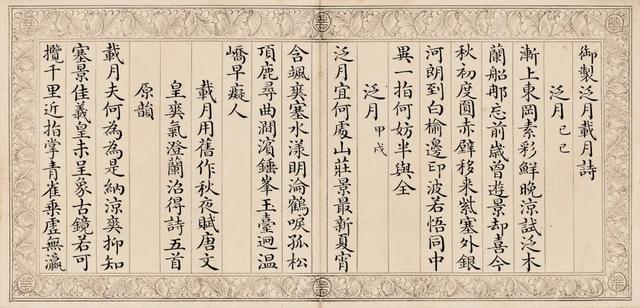 御製泛月載月詩
泛月 己巳
漸上東岡素彩鮮晚涼試泛木
蘭船那忘前歲曾遊景却喜今
秋初度圓赤壁移来紫塞外銀
河朗到白榆邊印波若悟同中
異一指何妨半與全
泛月 甲戌
泛月宜何處山莊景最新夏宵
含颯爽塞水漾明淪鶴唳孤松
頂鹿尋曲澗濱錘峯玉臺迥溫
嶠早癡人
載月用舊作秋夜賦唐文
皇爽氣澄蘭沼得詩五首
原韻
載月夫何為為是納涼爽抑知
塞景佳羲皇未呈象古鏡若可
攬千里近指掌青雀乗虛無瀛